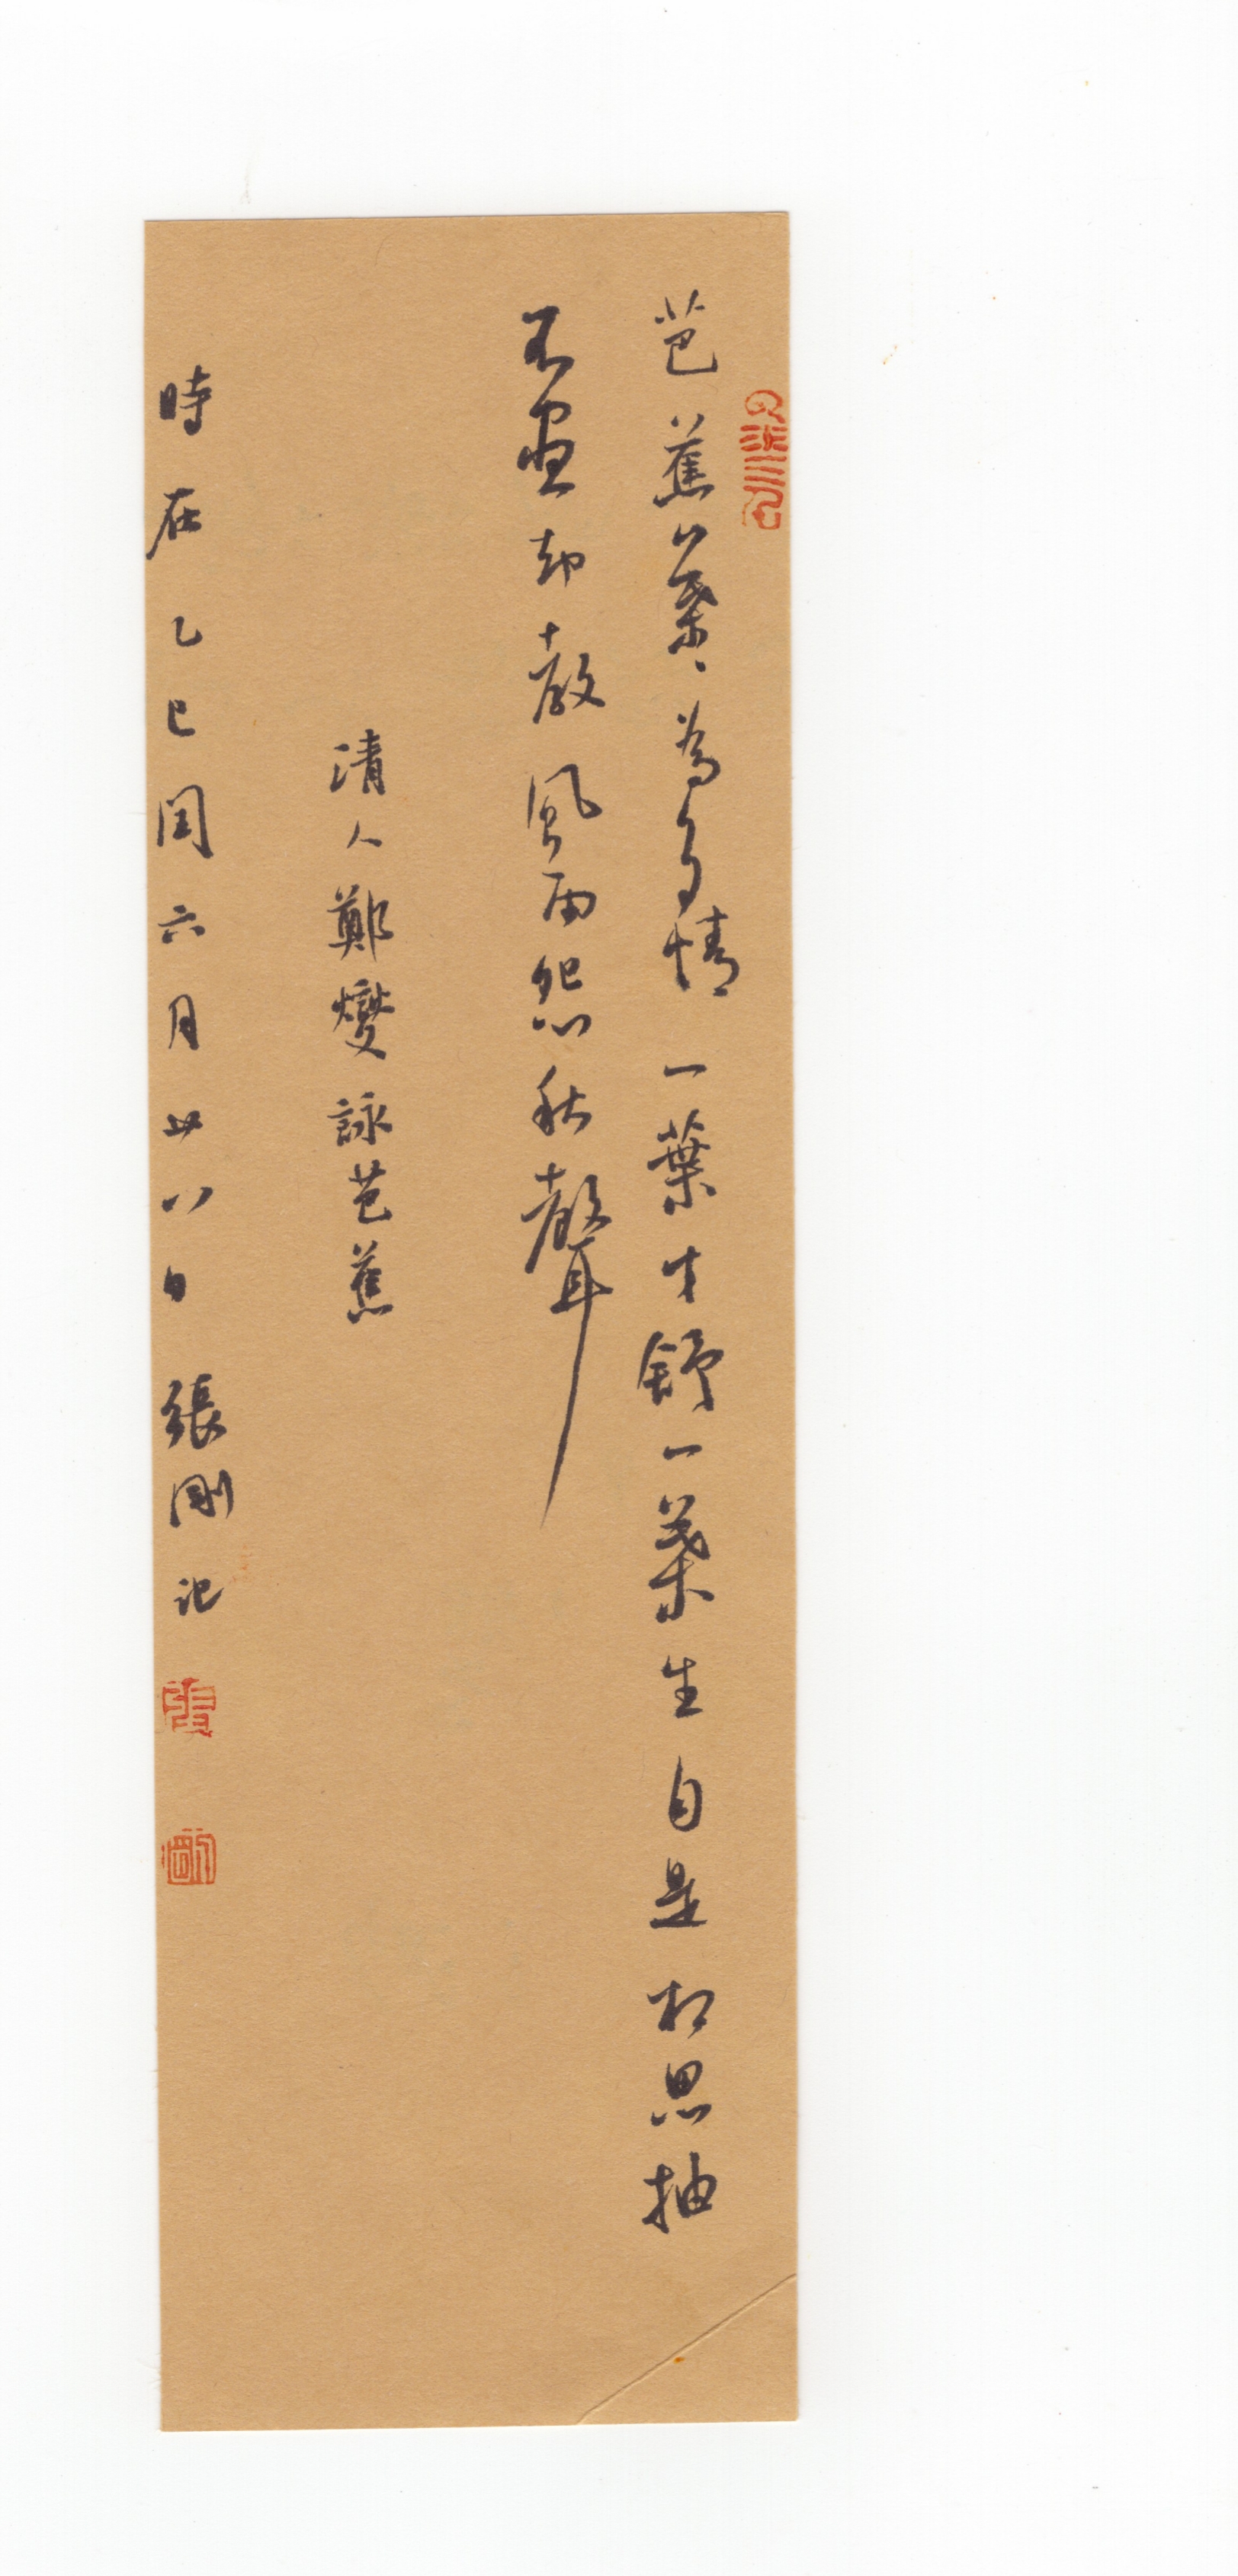 芭蕉葉〻為多情一葉才舒一葉生自是相思抽
不盡却教風雨怨秋聲
清人鄭燮詠芭蕉
時在乙巳閏六月廿八日張剛記